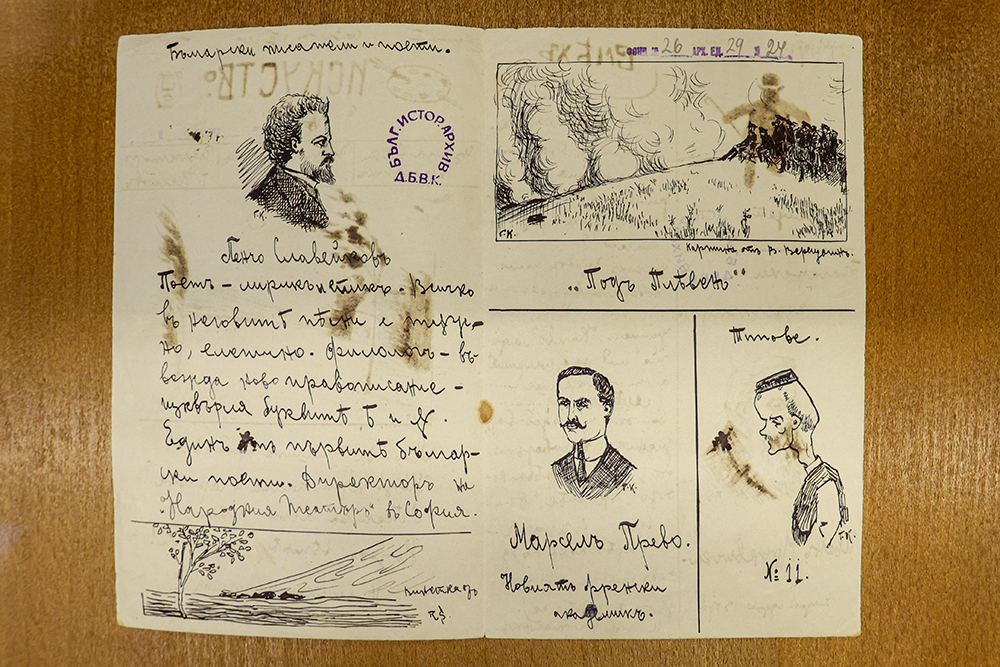 Български писатели и поети.
Г.К.
БЪЛГ. ИСТОР. АРХИВ
Д.Б.В.К.
Пенчо Славейковъ
Поетъ – лирикъ и епикъ. Всичко
въ неговитѣ пѣсни е
но, елегично. Филологъ – въ-
вежда ново правописание –
изхвърля буквитѣ ъ и ѫ.
Единъ отъ първитѣ българ-
ски поети. Директоръ на
"Народния Театъръ" въ София.
ФОНД № 26 АРХ. ЕД. 29 Л. 24
Г.К.
Картина отъ В. Верещагинъ.
„Подъ Плѣвенъ"
Г.К.
Марсель Прево.
Новиятъ френски
академикъ.
Типове.
Г.К.
№ 11.
ИСКУСТВО